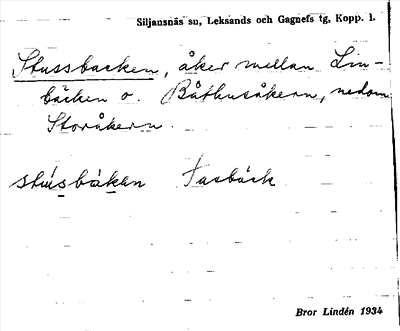 Siljansnäs sn, Leksands och Gagnefs tg, Kopp. l.
Stussbacken, åker mellan Lin-
bäcken o. Båthusåkern, nedom
Storåkern.
stusbakan
Bror Lindén 1934